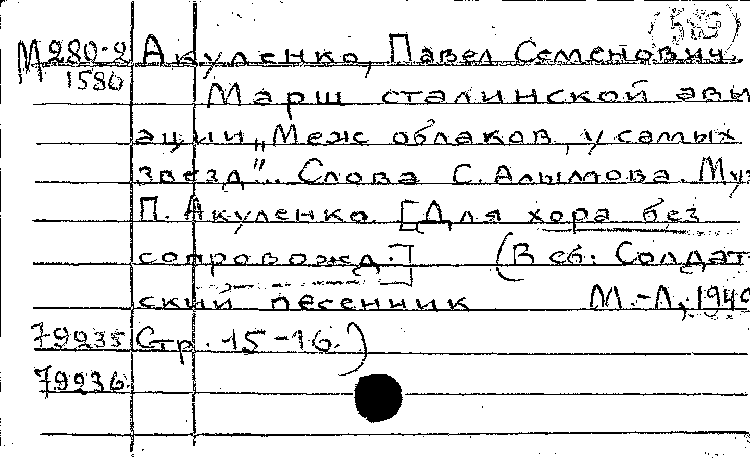 (589)
М280-2 Акуленко, Павел Семенович.
1580 Марш сталинской ави
ации „Меж облаков, у самых
звезд“. Слова С. Алымова. Муз
П. Акуленко. [Для хора без
сопровожд.] (В сб: Солдат-
ский песенник М.-Л, 1940
79235 Стр. 15-16.)
79236